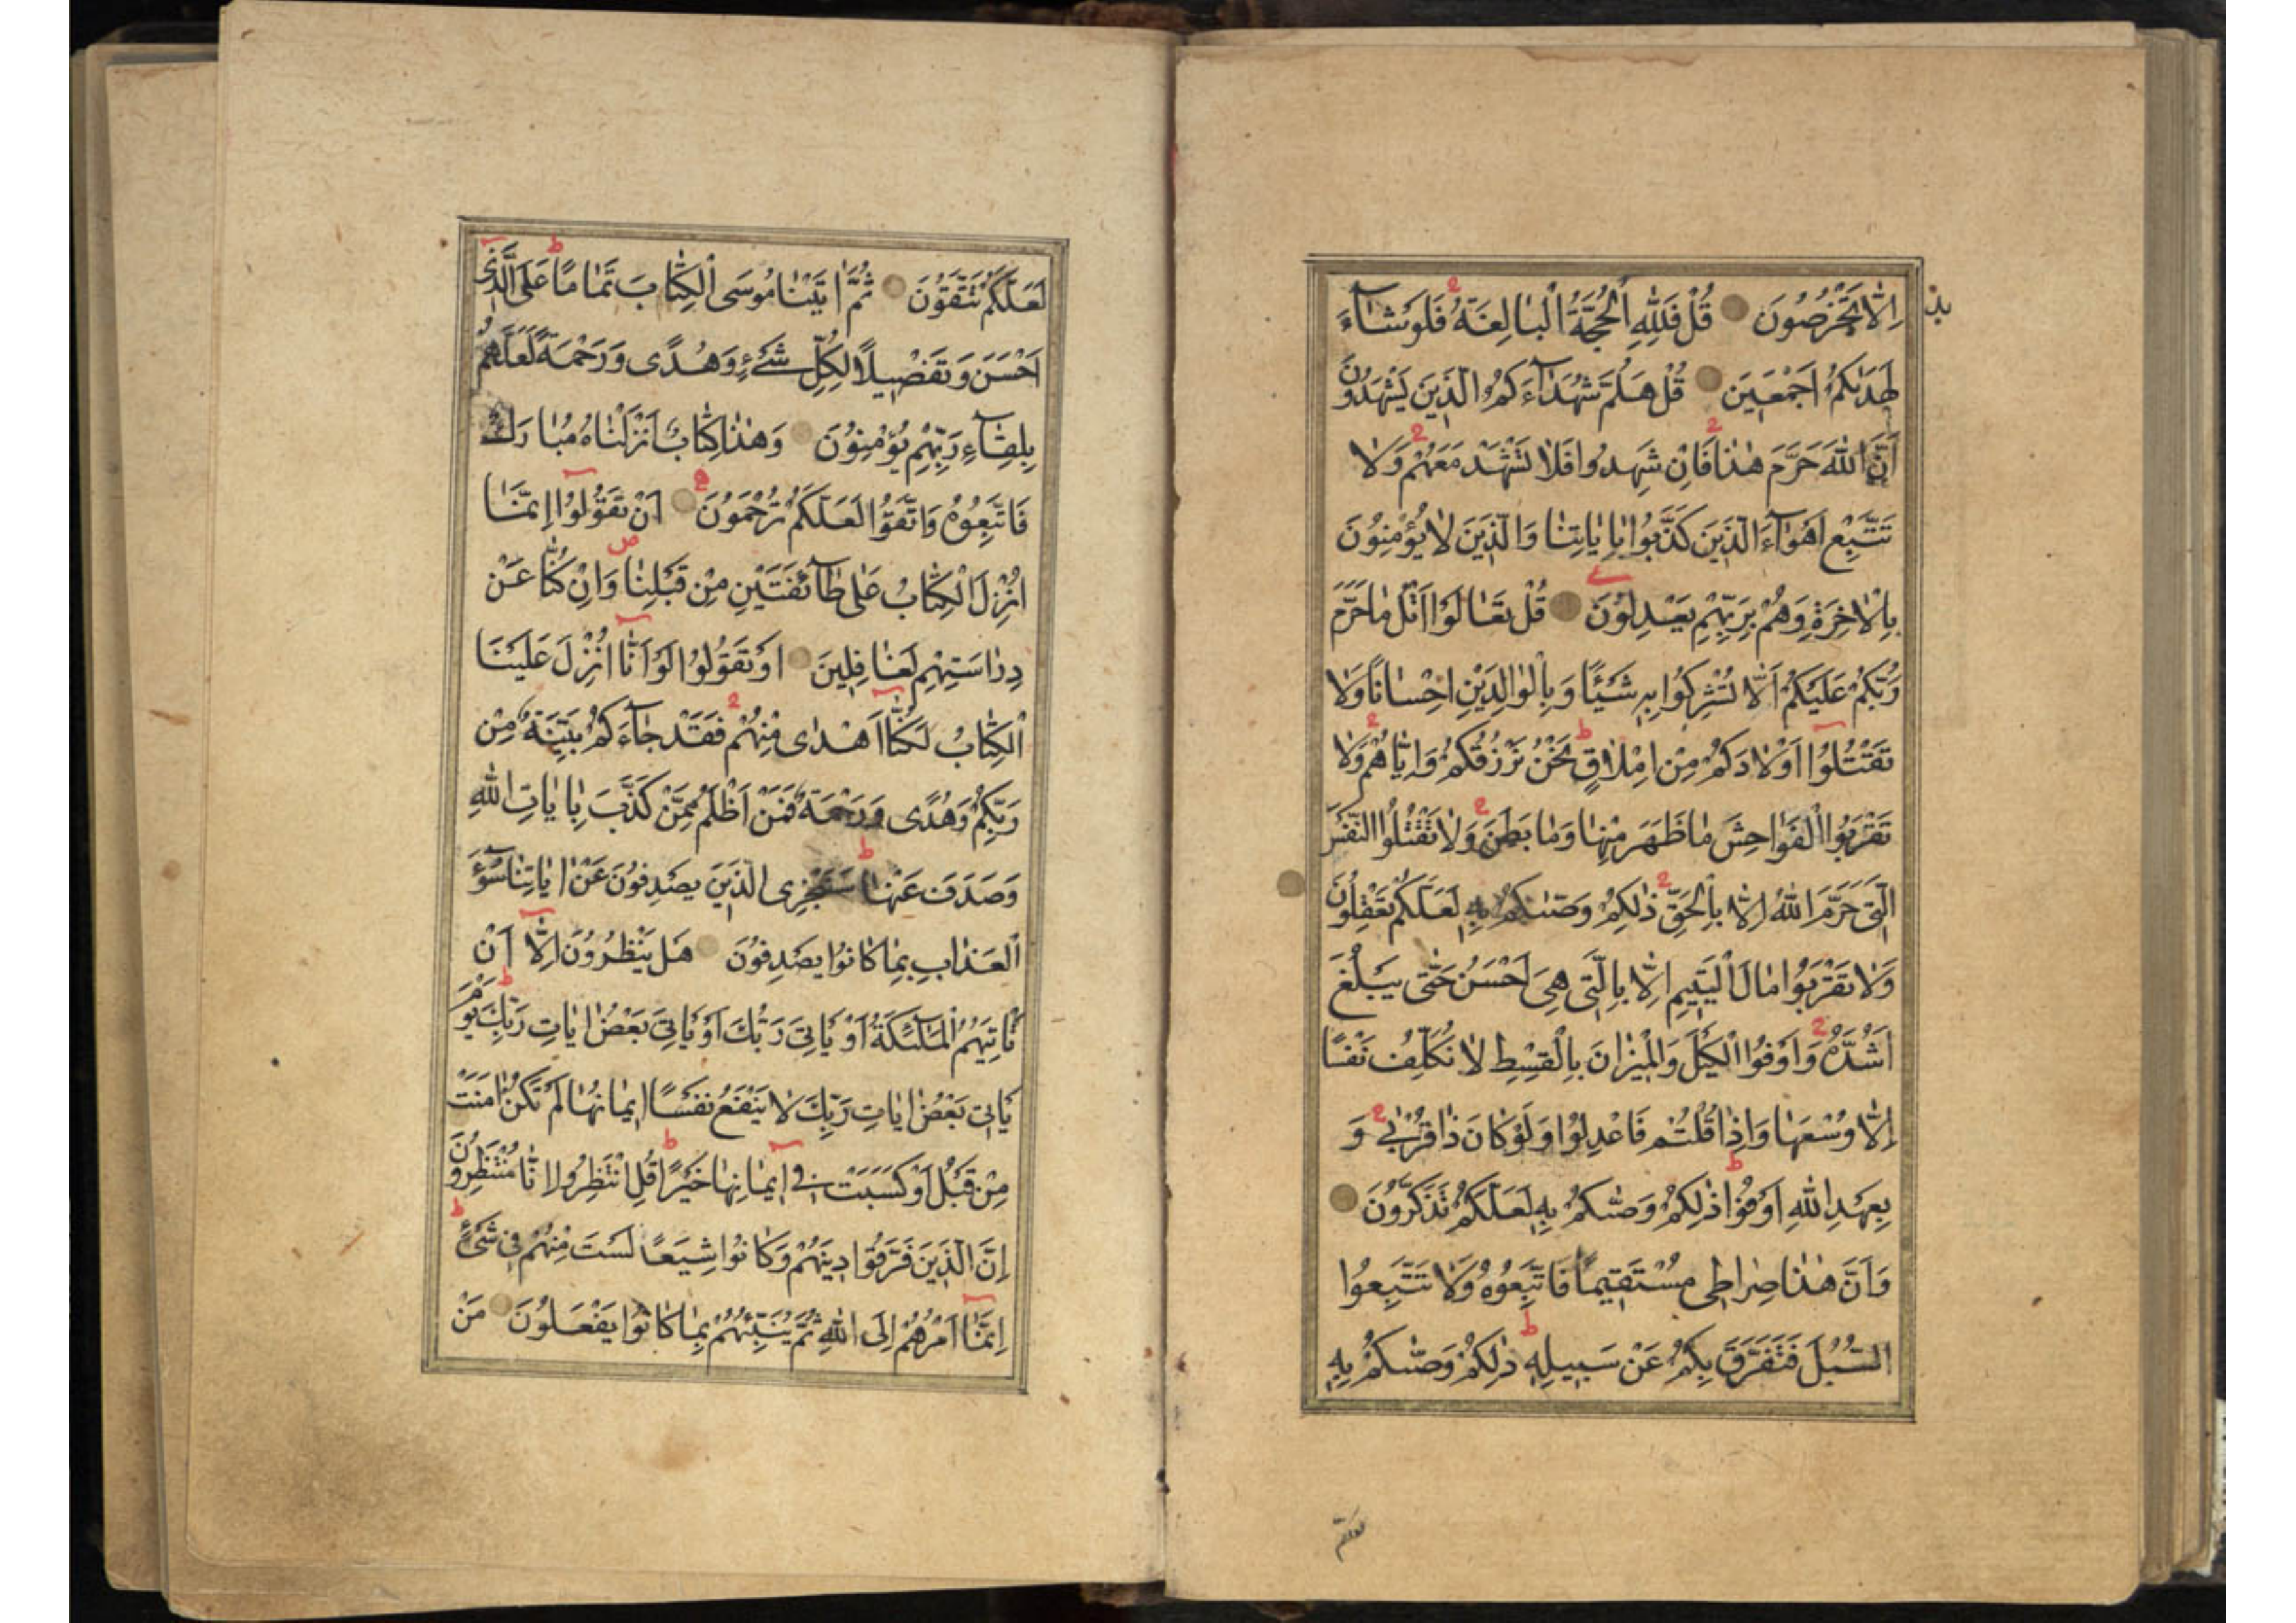 اِلّٰا تَخْرُصُونَ قُلْ فَلِلّٰهِ الْحُجَّةُ الْبٰالِغَةُ فَلَوْ شٰٓاءَ
لَهَدٰىكُمْ اَجْمَعِينَ قُلْ هَلُمَّ شُهَدٰٓاءَكُمُ الَّذِينَ يَشْهَدُونَ
اَنَّ اللّٰهَ حَرَّمَ هٰذٰا فَاِنْ شَهِدُوا فَلٰا تَشْهَدْ مَعَهُمْ وَلٰا
تَتَّبِعْ اَهْوٰٓاءَ الَّذِينَ كَذَّبُوا بِاٰيٰاتِنٰا وَالَّذِينَ لٰا يُؤْمِنُونَ
بِالْاٰخِرَةِ وَهُمْ بِرَبِّهِمْ يَعْدِلُونَ قُلْ تَعٰالَوْا اَتْلُ مٰا حَرَّمَ
رَبُّكُمْ عَلَيْكُمْ اَلّٰا تُشْرِكُوا بِهِ شَيْئًا وَبِالْوٰالِدَيْنِ اِحْسٰانًا وَلٰا
تَقْتُلُوٓا اَوْلٰادَكُمْ مِنْ اِمْلٰاقٍ نَحْنُ نَرْزُقُكُمْ وَاِيّٰاهُمْ وَلٰا
تَقْرَبُوا الْفَوٰاحِشَ مٰا ظَهَرَ مِنْهٰا وَمٰا بَطَنَ وَلٰا تَقْتُلُوا النَّفْسَ
الَّتِى حَرَّمَ اللّٰهُ اِلّٰا بِالْحَقِّ ذٰلِكُمْ وَصّٰىكُمْ بِهِ لَعَلَّكُمْ تَعْقِلُونَ
وَلٰا تَقْرَبُوا مٰالَ الْيَتِيمِ اِلّٰا بِالَّتِى هِىَ اَحْسَنُ حَتّٰى يَبْلُغَ
اَشُدَّهُ وَاَوْفُوا الْكَيْلَ وَالْمِيزٰانَ بِالْقِسْطِ لٰا نُكَلِّفُ نَفْسًا
اِلّٰا وُسْعَهٰا وَاِذٰا قُلْتُمْ فَاعْدِلُوا وَلَوْ كٰانَ ذٰا قُرْبٰى وَ
بِعَهْدِ اللّٰهِ اَوْفُوا ذٰلِكُمْ وَصّٰىكُمْ بِهِ لَعَلَّكُمْ تَذَكَّرُونَ
وَاَنَّ هٰذٰا صِرٰاطِى مُسْتَقِيمًا فَاتَّبِعُوهُ وَلٰا تَتَّبِعُوا
السُّبُلَ فَتَفَرَّقَ بِكُمْ عَنْ سَبِيلِهِ ذٰلِكُمْ وَصّٰىكُمْ بِهِ
لعلكم
لَعَلَّكُمْ تَتَّقُونَ ثُمَّ اٰتَيْنٰا مُوسَى الْكِتٰابَ تَمٰامًا عَلَى الَّذِى
اَحْسَنَ وَتَفْصِيلًا لِكُلِّ شَىْءٍ وَهُدًى وَرَحْمَةً لَعَلَّهُمْ
بِلِقٰٓاءِ رَبِّهِمْ يُؤْمِنُونَ وَهٰذٰا كِتٰابٌ اَنْزَلْنٰاهُ مُبٰارَكٌ
فَاتَّبِعُوهُ وَاتَّقُوا لَعَلَّكُمْ تُرْحَمُونَ اَنْ تَقُولُوٓا اِنَّمٰا
اُنْزِلَ الْكِتٰابُ عَلٰى طٰٓائِفَتَيْنِ مِنْ قَبْلِنٰا وَاِنْ كُنّٰا عَنْ
دِرٰاسَتِهِمْ لَغٰافِلِينَ اَوْ تَقُولُوا لَوْ اَنّٰٓا اُنْزِلَ عَلَيْنَا
الْكِتٰابُ لَكُنّٰٓا اَهْدٰى مِنْهُمْ فَقَدْ جٰٓاءَكُمْ بَيِّنَةٌ مِنْ
رَبِّكُمْ وَهُدًى وَرَحْمَةٌ فَمَنْ اَظْلَمُ مِمَّنْ كَذَّبَ بِاٰيٰاتِ اللّٰهِ
وَصَدَفَ عَنْهٰا سَنَجْزِى الَّذِينَ يَصْدِفُونَ عَنْ اٰيٰاتِنٰا سُوٓءَ
الْعَذٰابِ بِمٰا كٰانُوا يَصْدِفُونَ هَلْ يَنْظُرُونَ اِلّٰٓا اَنْ
تَاْتِيَهُمُ الْمَلٰٓئِكَةُ اَوْ يَاْتِىَ رَبُّكَ اَوْ يَاْتِىَ بَعْضُ اٰيٰاتِ رَبِّكَ يَوْمَ
يَاْتِى بَعْضُ اٰيٰاتِ رَبِّكَ لٰا يَنْفَعُ نَفْسًا اِيمٰانُهٰا لَمْ تَكُنْ اٰمَنَتْ
مِنْ قَبْلُ اَوْ كَسَبَتْ فِىٓ اِيمٰانِهٰا خَيْرًا قُلِ انْتَظِرُوا اِنّٰا مُنْتَظِرُونَ
اِنَّ الَّذِينَ فَرَّقُوا دِينَهُمْ وَكٰانُوا شِيَعًا لَسْتَ مِنْهُمْ فِى شَىْءٍ
اِنَّمٰٓا اَمْرُهُمْ اِلَى اللّٰهِ ثُمَّ يُنَبِّئُهُمْ بِمٰا كٰانُوا يَفْعَلُونَ مَنْ